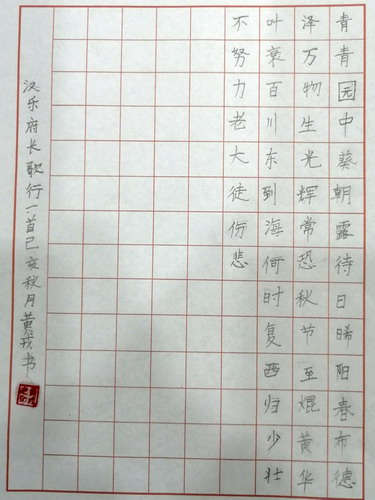 青青园中葵朝露待日晞阳春布德
泽万物生光辉常恐秋节至焜黄华
叶衰百川东到海何时复西归少壮
不努力老大徒伤悲
汉乐府长歌行一首己亥秋月黄戎书